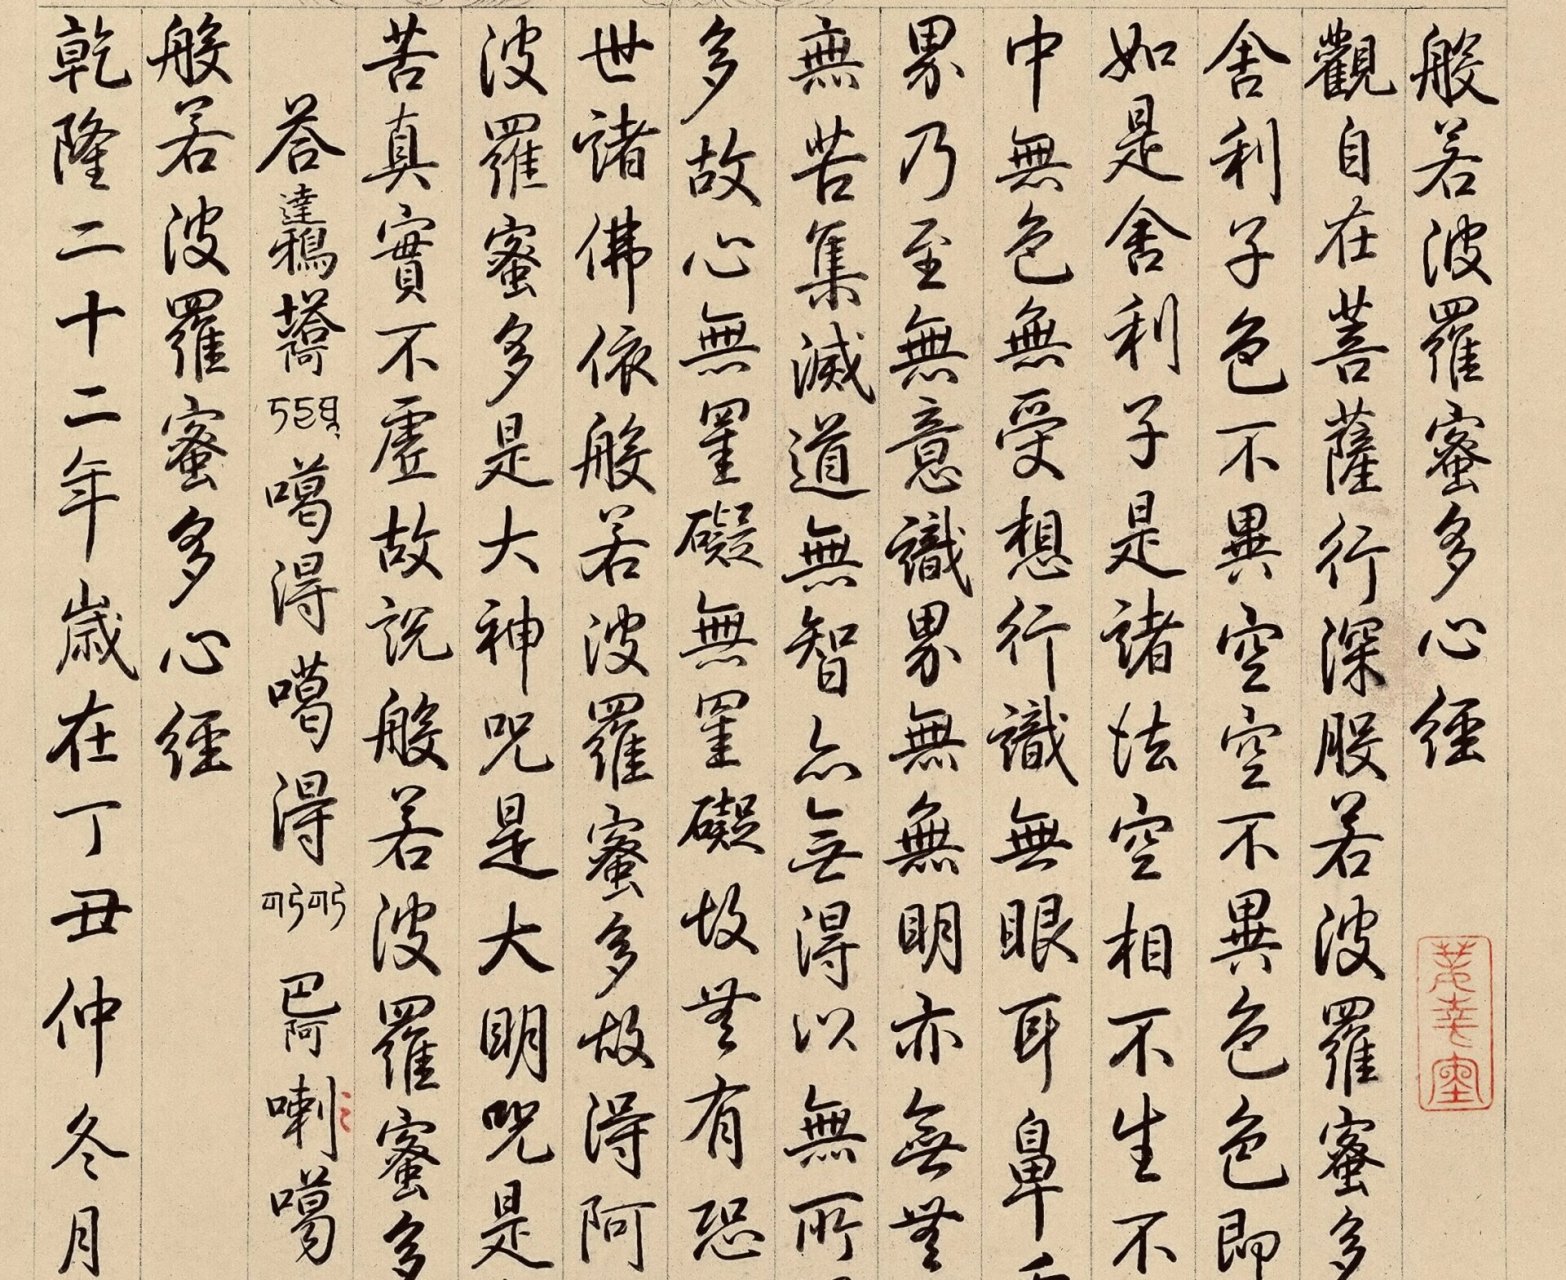 般若波羅蜜多心經
觀自在菩薩行深般若波羅蜜多
舍利子色不異空空不異色色即
如是舍利子是諸法空相不生不
中無色無受想行識無眼耳鼻
界乃至無意識界無無明亦無無
無苦集滅道無智亦無得以無所
多故心無罣礙無罣礙故無有恐
世諸佛依般若波羅蜜多故得阿
波羅蜜多是大神呪是大明呪是
苦真實不虛故說般若波羅蜜多
荅達鴉塔阿噶得噶得巴阿喇噶
般若波羅蜜多心經
乾隆二十二年歲在丁丑仲冬月